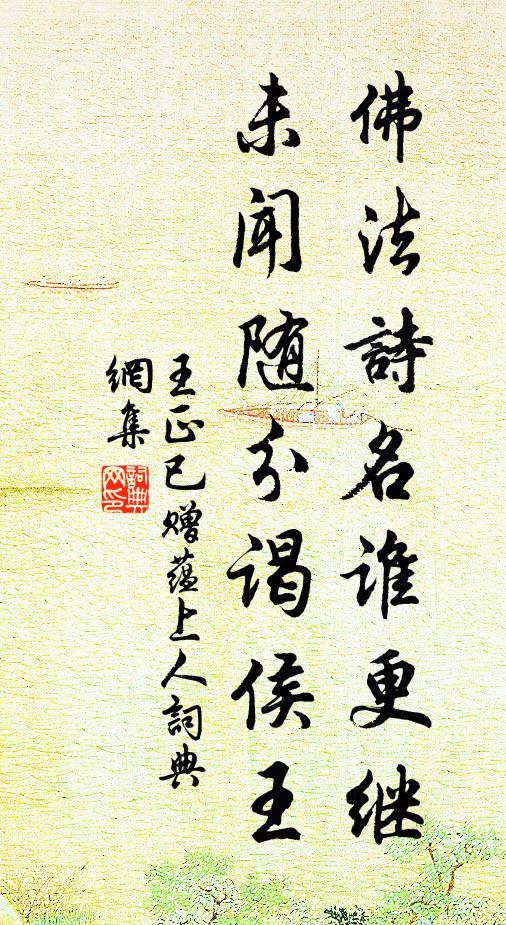 佛法詩名谁更继
未闻随分谒侯王
王正已赠蕴上人詞典
網集
詞典網印